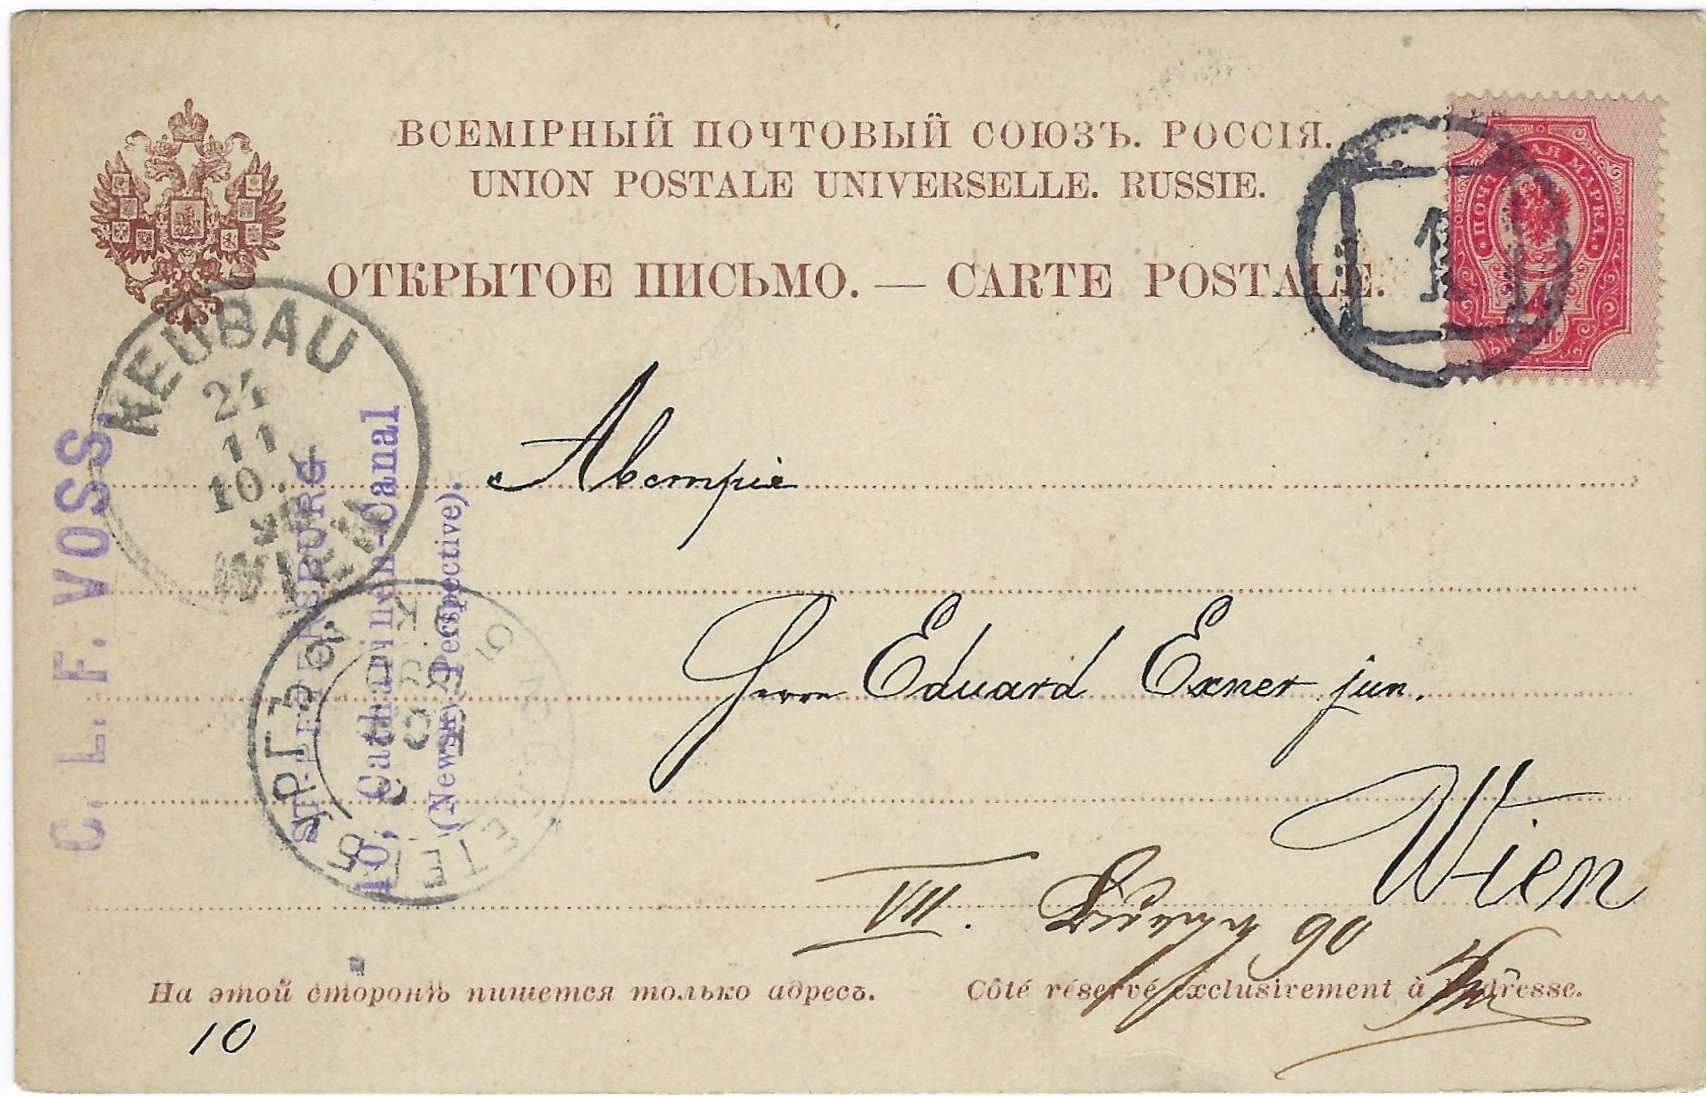 ВСЕМІРНЫЙ ПОЧТОВЫЙ СОЮЗЪ. РОССІЯ.
UNION POSTALE UNIVERSELLE. RUSSIE.
ОТКРЫТОЕ ПИСЬМО. — CARTE POSTALE.
ПОЧТОВАЯ МАРКА.
4
1
NEUBAU
24
11
10
WIEN
C. L. F. VOSS,
ST-PETERSBURG
10, Catharinen-Canal
(Newsky Perspective).
Herrn Eduard Exner jun.
Wien
VII. 90
На этой сторонѣ пишется только адресъ.
Côté réservé exclusivement à l'adresse.
10